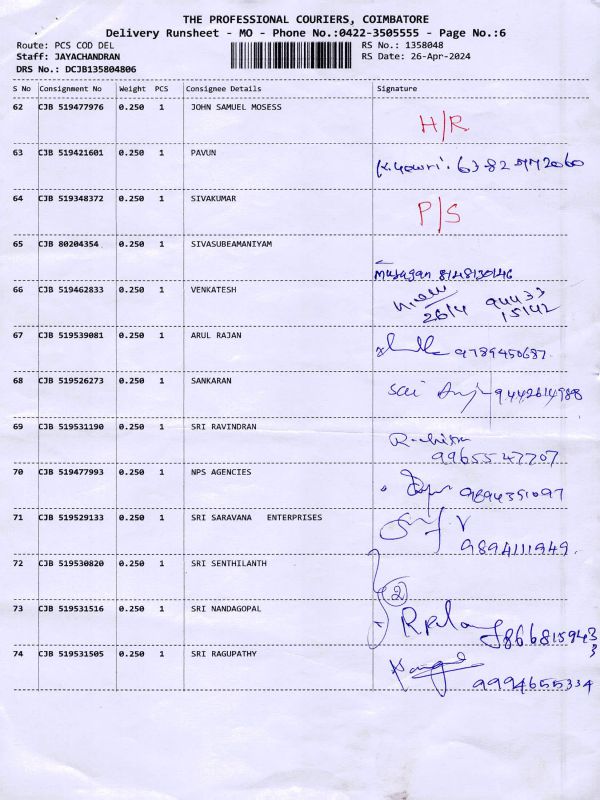 THE PROFESSIONAL COURIERS, COIMBATORE
Delivery Runsheet - MO - Phone No.:0422-3505555 - Page No.:6
Route: PCS COD DEL RS No.: 1358048
Staff: JAYACHANDRAN RS Date: 26-Apr-2024
DRS No.: DCJB135804806
S No Consignment No Weight PCS Consignee Details Signature
62 CJB 519477976 0.250 1 JOHN SAMUEL MOSESS
H/R
63 CJB 519421601 0.250 1 PAVUN
64 CJB 519348372 0.250 1 SIVAKUMAR
P/S
65 CJB 80204354 0.250 1 SIVASUBEAMANIYAM
Murugan 8148130146
66 CJB 519462833 0.250 1 VENKATESH
26/4 94433
15142
67 CJB 519539081 0.250 1 ARUL RAJAN
9789450687
68 CJB 519526273 0.250 1 SANKARAN
Sai 9442614988
69 CJB 519531190 0.250 1 SRI RAVINDRAN
9965547707
70 CJB 519477993 0.250 1 NPS AGENCIES
9894351097
71 CJB 519529133 0.250 1 SRI SARAVANA ENTERPRISES
9894111949.
72 CJB 519530820 0.250 1 SRI SENTHILANTH
2
73 CJB 519531516 0.250 1 SRI NANDAGOPAL
74 CJB 519531505 0.250 1 SRI RAGUPATHY
9994655334